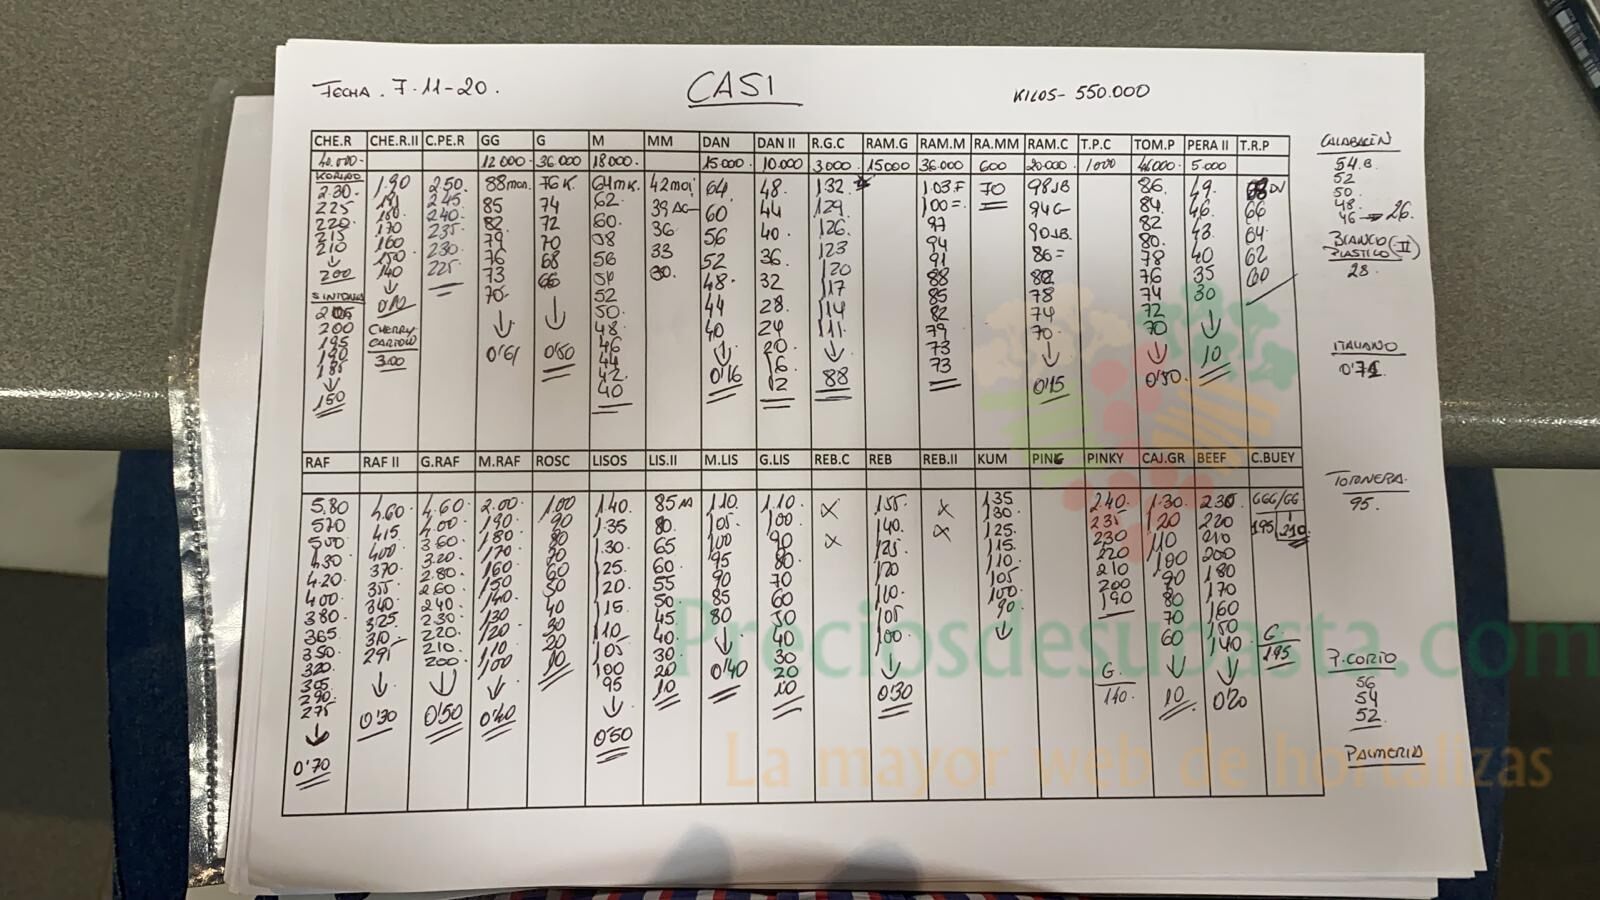 FECHA. 7-11-20.
CASI
KILOS- 550.000
CHE.R CHE.R.II C.PE.R GG G M MM DAN DAN II R.G.C RAM.G RAM.M RA.MM RAM.C T.P.C TOM.P PERA II T.R.P
40.000- 12000- 36000 18000- 15000- 10.000 3000- 15000 36.000 600 20.000- 1000 5.000
2.30. 1.90 2.50 88 76K. 64 42 64. 48. 132 1.03F 70 98JB 86. 49.
225 245 85 74 62. 39 60 44 129. 100= 94G 84 46. 66
220 180. 240 82. 72 60. 36 56 40. 126. 97 90JB. 82 43. 64
215 170 235 79 70 58 33 52 36. 123 94 86= 80. 40 62
210 160 230 76 68 56 30. 48. 32 120 91 82 78 35 60
↓ 150 225 73 66 54 44 28. 117 88 78 76 30
200 140 70. ↓ 52 40 24 114 85 74 74 ↓
↓ ↓ 0'50 50. ↓ 20 111. 82 70. 72 10
CHERRY 0'61 48 0'16 16 ↓ 79 ↓ 70
200 3.00 46 12 88 73 0'15 ↓
195 44 73 0'50.
190 42.
185 40
↓
150
RAF RAF II G.RAF M.RAF ROSC LISOS LIS.II M.LIS G.LIS REB.C REB REB.II KUM PINK PINKY CAJ.GR BEEF C.BUEY
5.80 4.60. 4.60. 2.00. 1.00 1.40. 85 1.10. 1.10. X 155. X 1.35 2.40. 1.30. 2.30 GGG/GG
570 415 4.00. 190. 90 1.35 80. 105. 100. X 140. X 130. 235 120 220 195 210.
500 400 3.60 180 80 1.30. 65 100 90 125. 125. 230 110 210
430 370 3.20. 170 125. 60. 95 80 120 115. 220 100 200
4.20 355 2.80. 160 60 120. 55 90 70 110. 110. 210 90 180
400. 340 260. 150 50 115. 50. 85 60 105 105 200 80 170
380 325 240. 140 40 110 45 80 50 100. 100. 190 70 160
365. 310. 230. 130 30 105 40. ↓ 40 ↓ 90. 60 150
350 295 220. 120 20 100 30 0'40 30 0'30 ↓ ↓ 140 G.
320. ↓ 210. 110 10 95 20 20 G. 10 ↓ 195
305 0'30 200. 100 ↓ 10 10 140. 0'20
290. ↓ ↓ 0'50
275 0'50 0'40
↓
0'70
CALABACÍN
54.B
52
50.
48.
46 → 26.
BLANCO
PLASTICO (II)
28.
ITALIANO
TOTONERA.
95.
P. CORTO
56
54
52.
PALMERIA
Preciosdesubasta.com
La mayor web de hortalizas